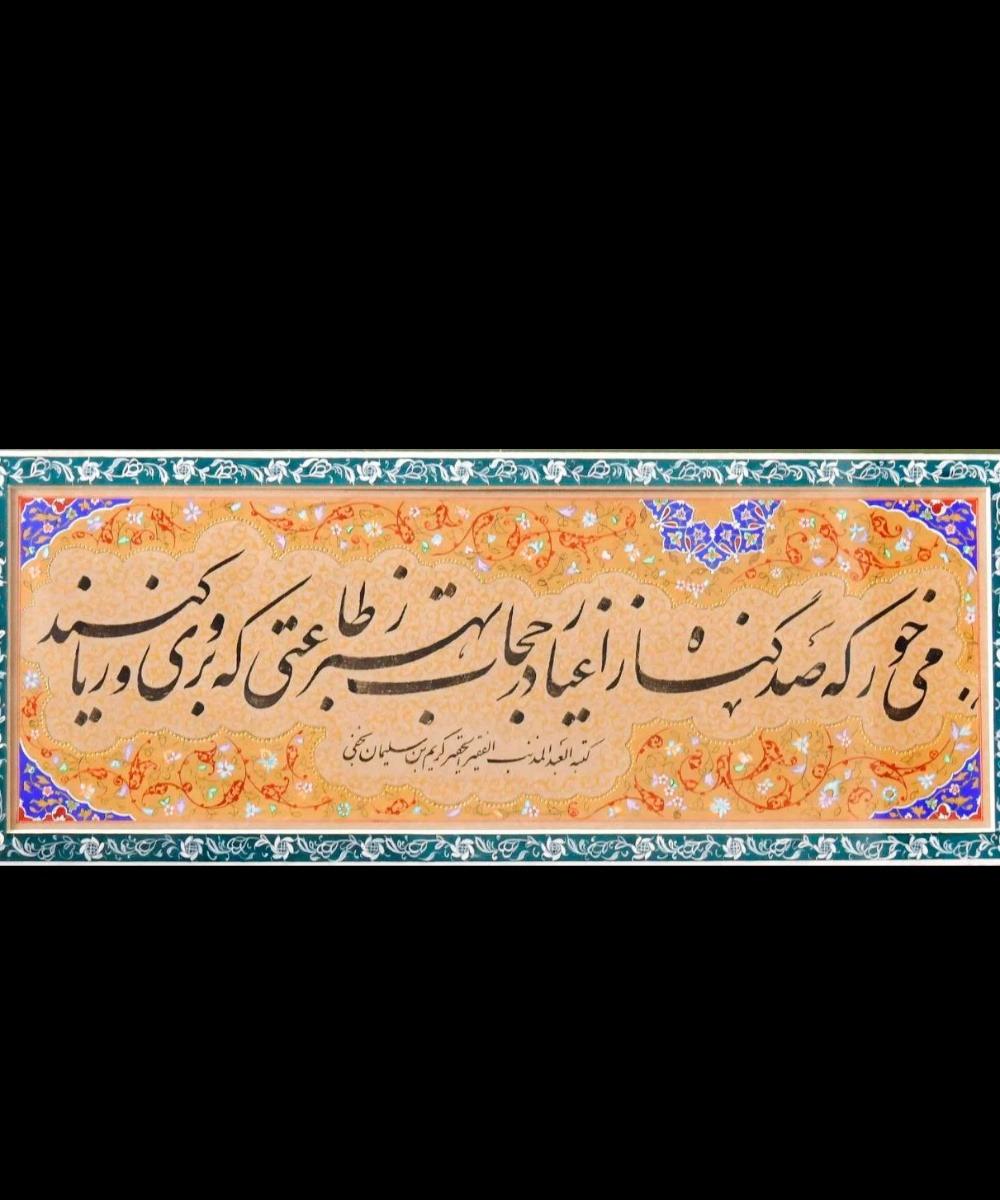 می خور که صد گناه ز اغیار در حجاب بهتر ز طاعتی که بروی و ریا کنند
کتبه العبد المذنب الفقیر الحقیر کریم بن سلیمان